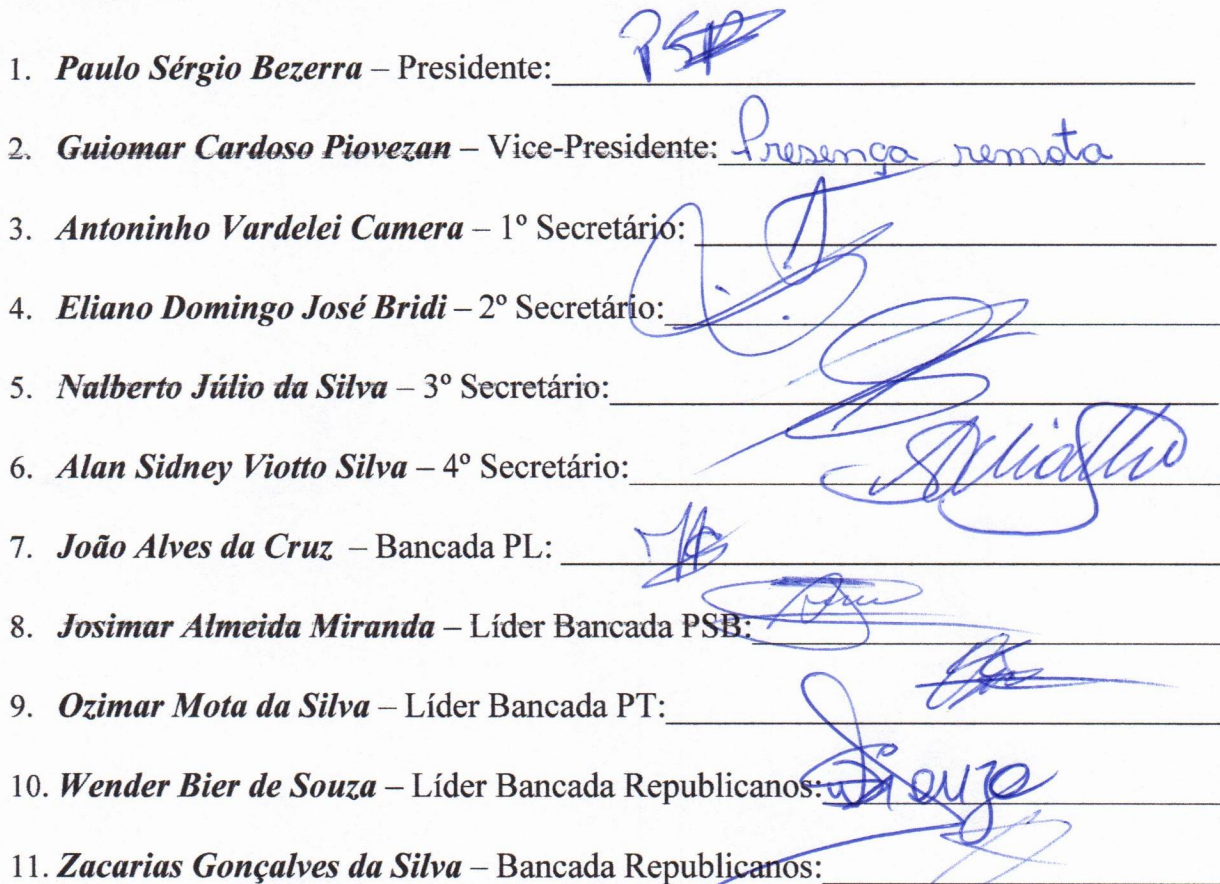 1. Paulo Sérgio Bezerra – Presidente:
2. Guiomar Cardoso Piovezan – Vice-Presidente: Presença remota
3. Antoninho Vardelei Camera – 1º Secretário:
4. Eliano Domingo José Bridi – 2º Secretário:
5. Nalberto Júlio da Silva – 3º Secretário:
6. Alan Sidney Viotto Silva – 4º Secretário:
7. João Alves da Cruz – Bancada PL:
8. Josimar Almeida Miranda – Líder Bancada PSB:
9. Ozimar Mota da Silva – Líder Bancada PT:
10. Wender Bier de Souza – Líder Bancada Republicanos:
11. Zacarias Gonçalves da Silva – Bancada Republicanos: